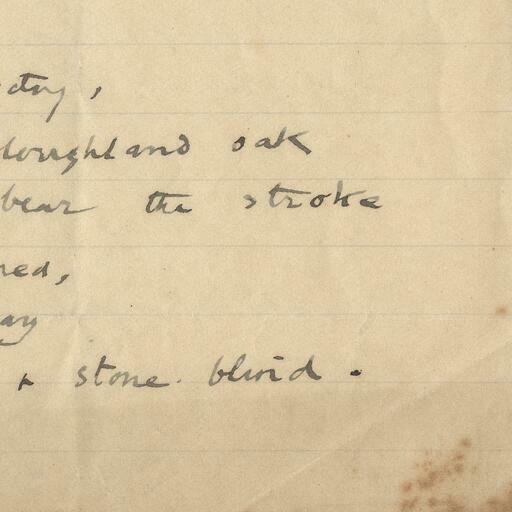 loughland oak
bear the stroke
ned,
ay
& stone blind.